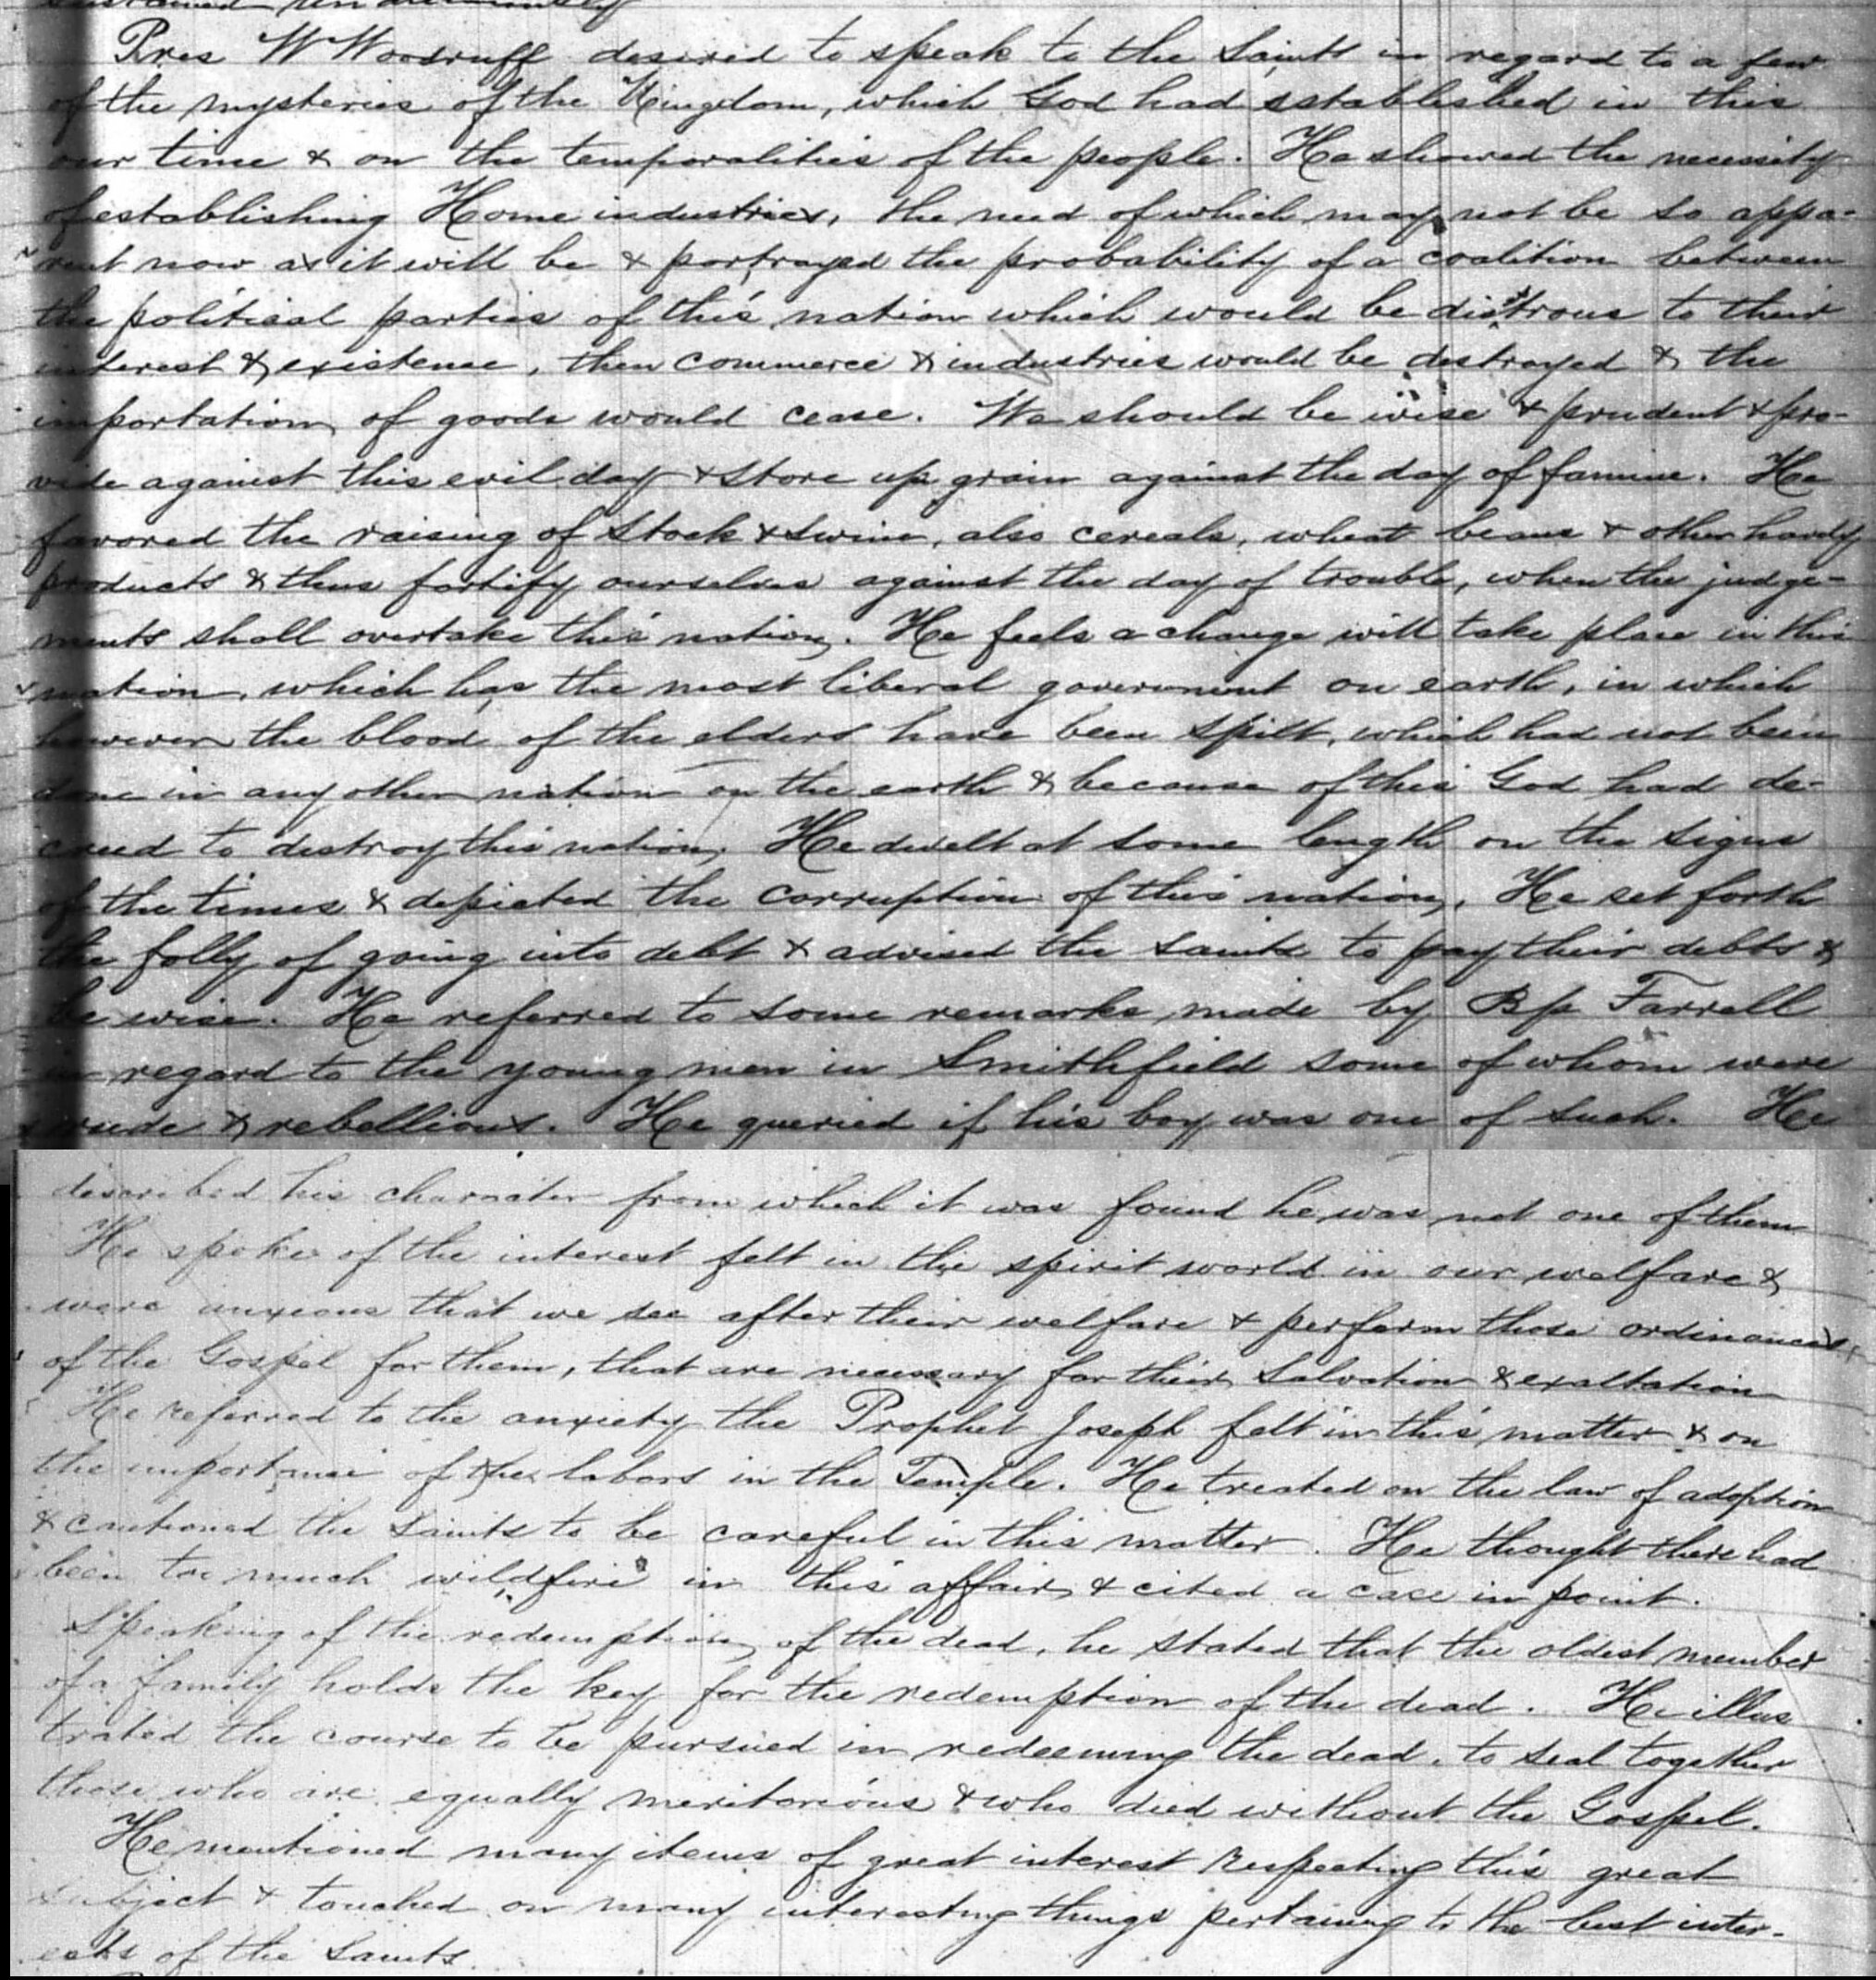 sustained unanimously
Pres W Woodruff desired to speak to the Saints in regard to a few
of the mysteries of the Kingdom, which God had established in this
our time & on the temporalities of the people. He showed the necessity
of establishing Home industries, the need of which may not be so appa-
rent now as it will be & portrayed the probability of a coalition between
the political parties of this nation which would be disstrous to their
interest & existence, then commerce & industries would be destroyed & the
importation of goods would cease. We should be wise & prudent & pro-
vide against this evil day & store up grain against the day of famine. He
favored the raising of Stock & Swine, also cereals, wheat beans & other hardy
products & thus fortify ourselves against the day of trouble, when the judge-
ments shall overtake this nation. He feels a change will take place in this
nation, which has the most liberal government on earth, in which
however the blood of the elders have been spilt, which had not been
done in any other nation on the earth & because of this God had de-
creed to destroy this nation. He dwelt at some length on the signs
of the times & depicted the corruption of this nation. He set forth
the folly of going into debt & advised the Saints to pay their debts &
be wise. He referred to some remarks made by Bp Farrell
in regard to the young men in Smithfield some of whom were
rude & rebellious. He queried if his boy was one of such. He
described his character from which it was found he was not one of them
He spoke of the interest felt in the spirit world in our welfare &
were anxious that we see after their welfare & perform those ordinances
of the Gospel for them, that are necessary for their Salvation & exaltation
He referred to the anxiety the Prophet Joseph felt in this matter & on
the importance of the labors in the Temple. He treated on the law of adoption
& cautioned the Saints to be careful in this matter. He thought there had
been too much wildfire in this affair & cited a case in point.
Speaking of the redemption of the dead, he stated that the oldest member
of a family holds the key for the redemption of the dead. He illus
trated the course to be pursued in redeeming the dead, to seal together
those who are equally meritorious & who died without the Gospel.
He mentioned many items of great interest respecting this great
subject & touched on many interesting things pertaining to the best inter-
ests of the Saints.